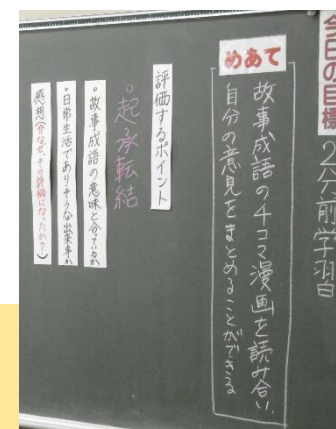 今日の目標
2分前学習
めあて
故事成語の4コマ漫画を読み合い、
自分の意見をまとめることができる
評価するポイント
○起承転結
・故事成語の意味と合っているか
・日常生活でありそうな出来事か
感想(※なぜ、その評価になったか？)